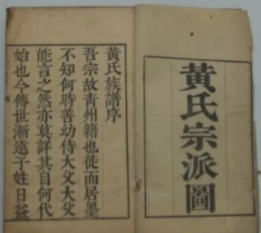 黃氏宗派圖
黃氏族譜序
吾宗故青州籍也徙而居墨
不知何時善幼侍大父大父
能言之然亦莫詳其自何代
始也今傳世漸遠子姓日益